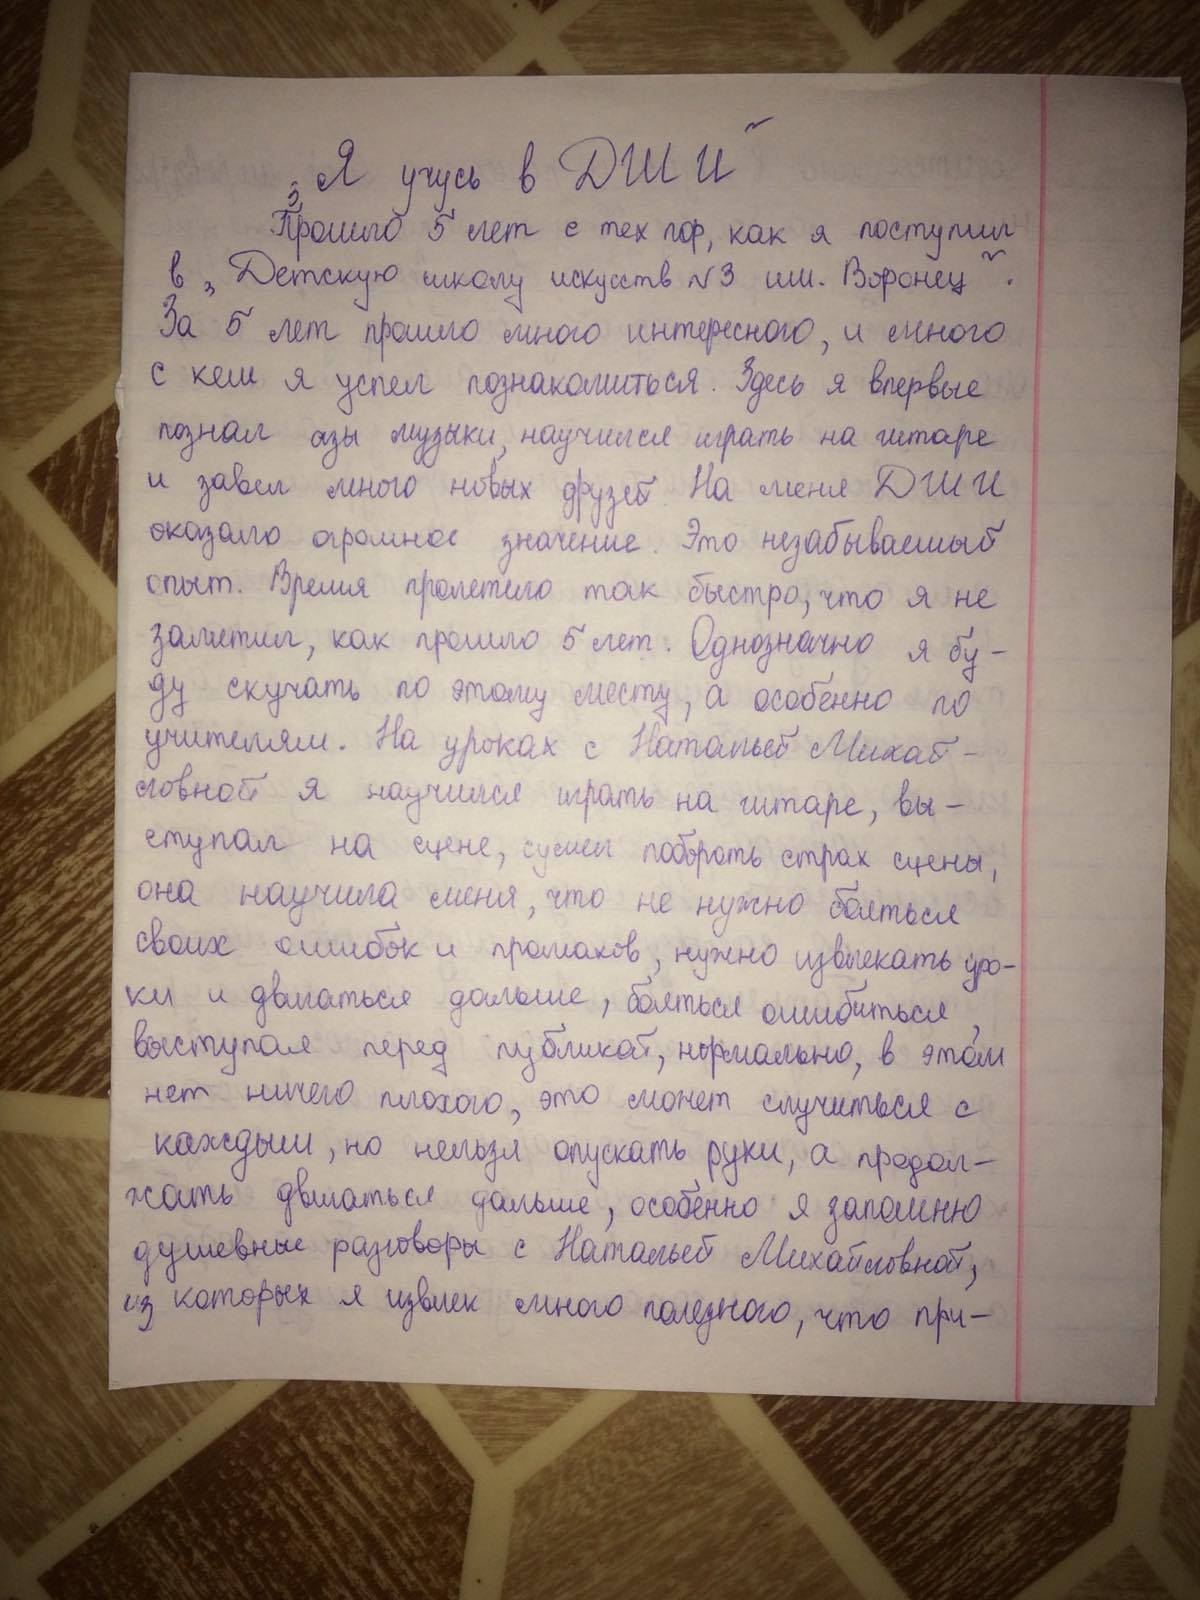 „Я учусь в ДШИ"
Прошло 5 лет с тех пор, как я поступил
в „Детскую школу искусств №3 им. Воронец".
За 5 лет прошло много интересного, и много
с кем я успел познакомиться. Здесь я впервые
познал азы музыки, научился играть на гитаре
и завел много новых друзей. На меня ДШИ
оказало огромное значение. Это незабываемый
опыт. Время пролетело так быстро, что я не
заметил, как прошло 5 лет. Однозначно я бу-
ду скучать по этому месту, а особенно по
учителям. На уроках с Натальей Михай-
ловной я научился играть на гитаре, вы-
ступал на сцене, сумел побороть страх сцены,
она научила меня, что не нужно бояться
своих ошибок и промахов, нужно извлекать уро-
ки и двигаться дальше, бояться ошибиться,
выступая перед публикой, нормально, в этом
нет ничего плохого, это может случиться с
каждым, но нельзя опускать руки, а продол-
жать двигаться дальше, особенно я запомню
душевные разговоры с Натальей Михайловной,
из которых я извлек много полезного, что при-